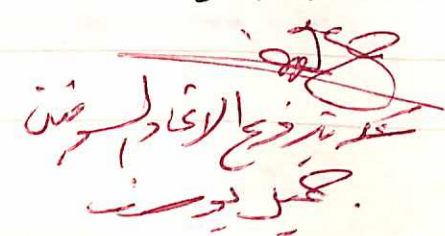 سكرتير فرع الاتحاد السوفيتي
جميل يوسف